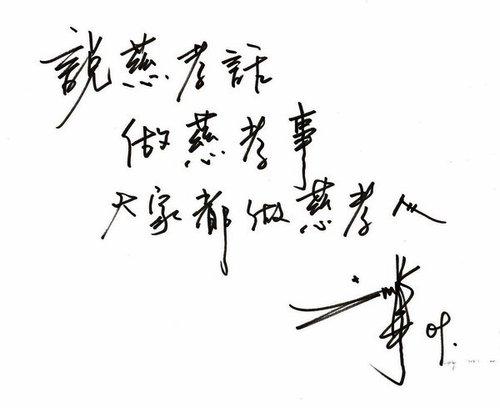 說慈孝話
做慈孝事
大家都做慈孝人